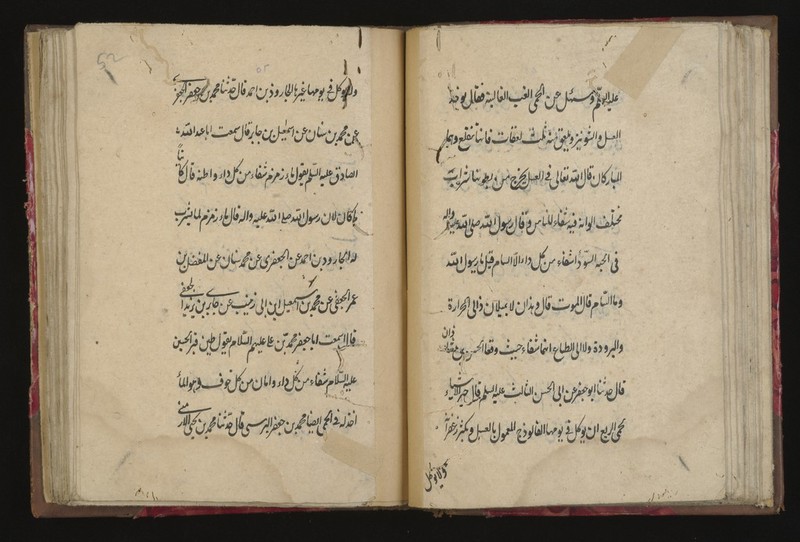 عليه السلم وسئل عن الحمى الغب الغالبة فقال يوخذ
العسل والشونيز ويلعق منه ثلث لعقات فانها تنقلع وهما
المباركان قال الله تعالى في العسل يخرج من بطونها شراب
مختلف الوانه فيه شفاء للناس وقال رسول الله صلى الله عليه واله
في الحبة السودا شفاء من كل داء الا السام قيل يا رسول الله
وما السام قال الموت قال وهذان لا يميلان الى الحرارة
والبرودة ولا الى الطباع انما شفاء حيث وقعا الحسن بن
قال حدثنا ابو جعفر عن ابى الحسن الثالث عليه السلم قال خير الاشياء
لحمى الربع ان يوكل فى يومها الفالوذج المعمول بالعسل ويكثر زعفرانه
ولا يوكل
ولا يوكل في يومها غيره الجارود بن احمد قال حدثنا محمد بن جعفر
عن محمد بن سنان عن اسمعيل بن جابر قال سمعت ابا عبد الله
الصادق عليه السلم يقول ماء زمزم شفاء من كل داء واظنه قال كائنا
ما كان لان رسول الله صلى الله عليه واله قال ماء زمزم لما شرب
له الجارود بن احمد عن الجعفرى عن محمد بن سنان عن المفضل بن
عمر الجعفى عن محمد بن اسمعيل ابن ابى زينب عن جابر بن يزيد الجعفى
قال سمعت ابا جعفر محمد بن على عليهم السلام يقول طين قبر الحسين
عليه السلام شفاء من كل داء وامان من كل خوف وهو لما
اخذ له فى الحمى ايضا محمد بن جعفر البرسى قال حدثنا محمد بن يحيى الارمنى
52